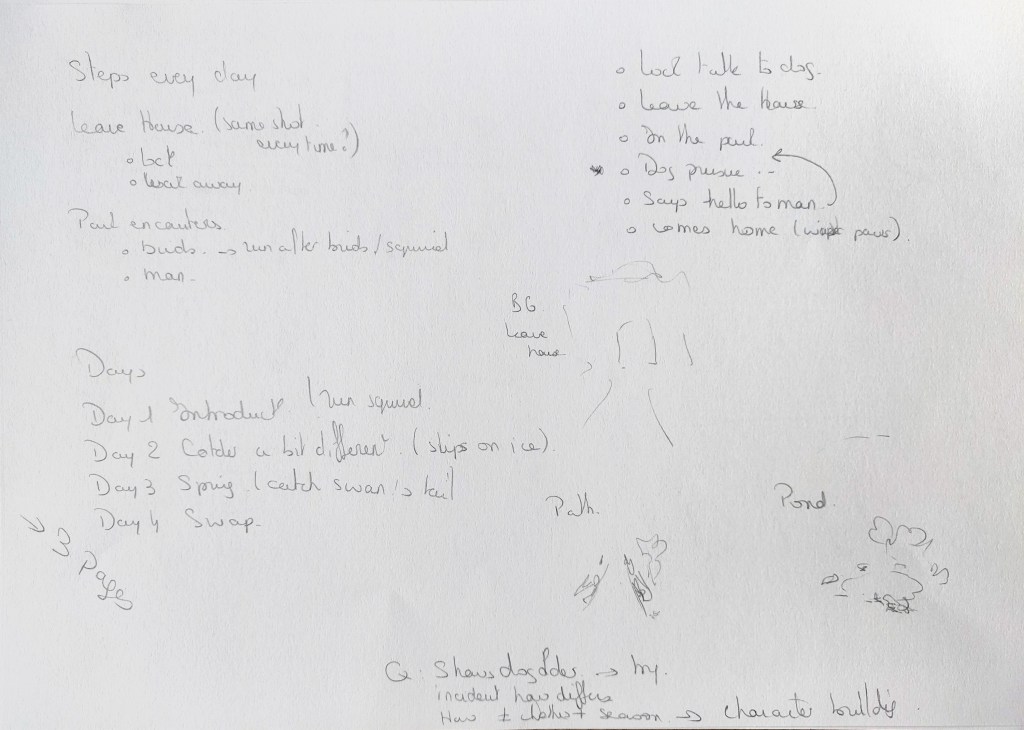 Steps every day
Leave House. (same shot
every time?)
• lock
• walk away
Park encounters
• birds. → run after birds/squirrel
• man.
• Lock talk to dog.
• Leave the House.
• In the park.
• Dog pursue ..
• Says hello to man.
• comes home (wipes paws).
BG
leave
house
Days
Day 1 Introduct / run squirrel.
Day 2 Colder a bit different. (slips on ice).
Day 3 Spring / catch swan's tail
Day 4 Swap.
→ 3 Pages
Path.
Pond.
Q: Shows dog older → try.
incident how differs
How ± clothes + season → character building.